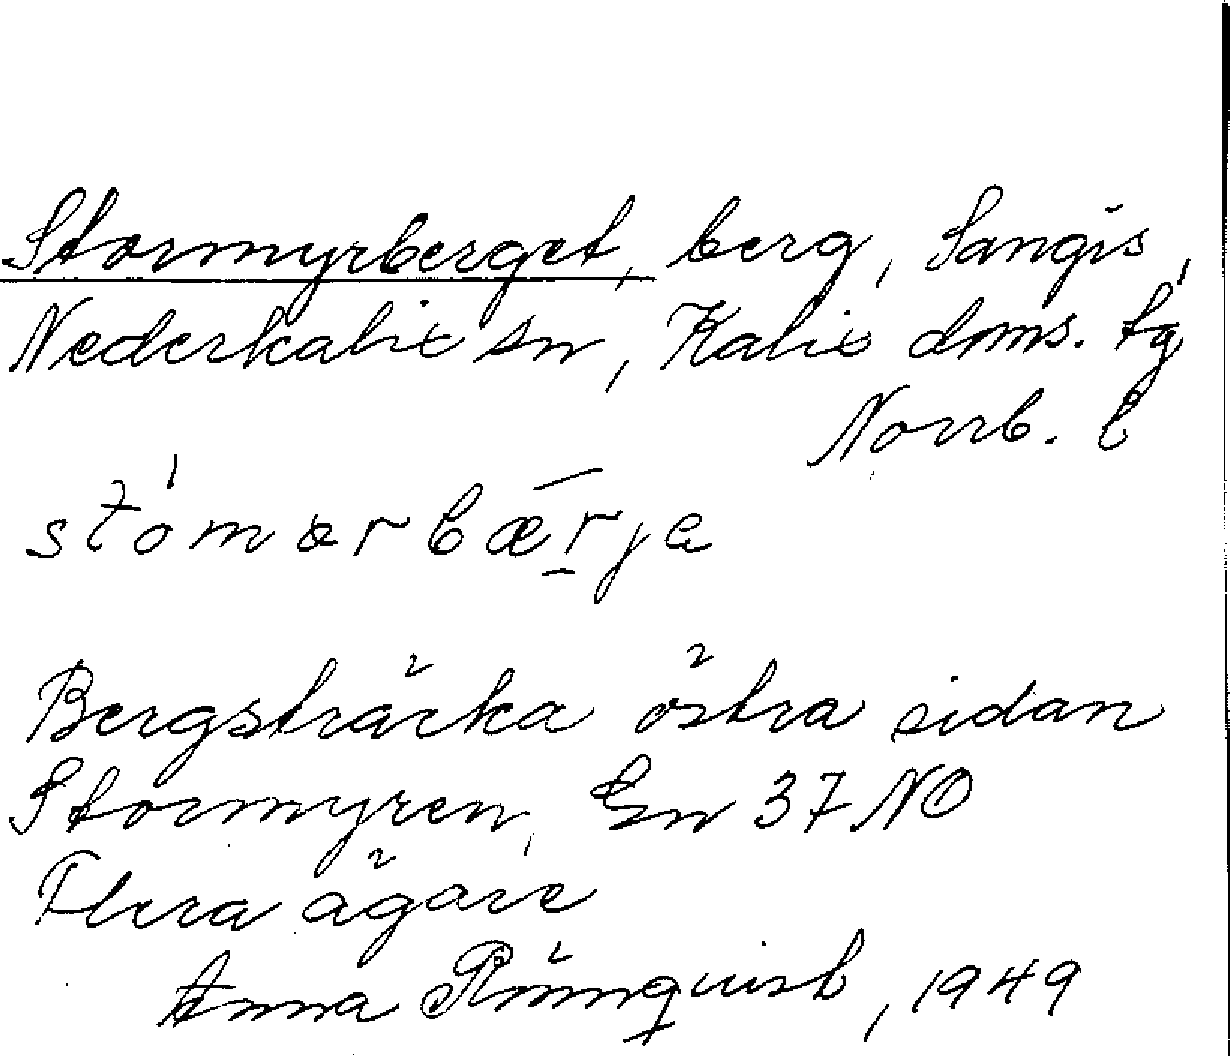 Stormyrberget, berg, Sangis,
Nederkalix sn, Kalix doms. tg
Norrb. l
stómarbær̲ja
Bergsträcka östra sidan
Stormyren, En 37 NO
Flera ägare
Anna Rönnquist, 1949